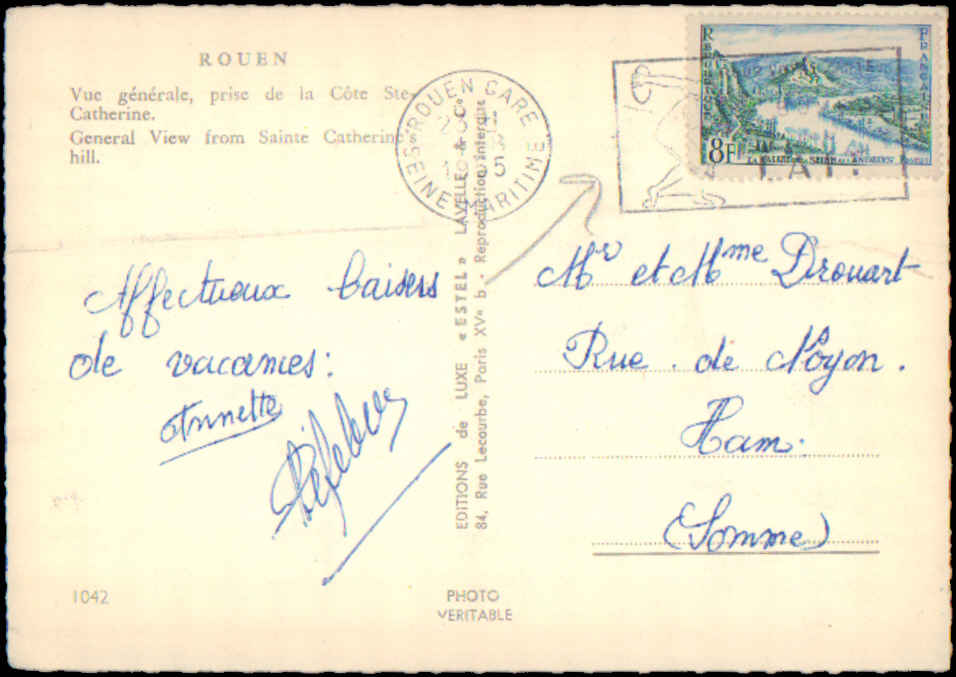 ROUEN
Vue générale, prise de la Côte Ste-
Catherine.
General View from Sainte Catherine's
hill.
Affectueux baisers
de vacances :
Annette
Lefebvre
1042
EDITIONS de LUXE « ESTEL » LAVELLE & Cie
84, Rue Lecourbe, Paris XVe b. - Reproduction interdite
PHOTO
VERITABLE
ROUEN GARE
SEINE MARITIME
8F
LA VALLEE DE LA SEINE AUX ANDELYS POSTES
Mr et Mme Drouart
Rue . de Noyon .
Ham.
(Somme)